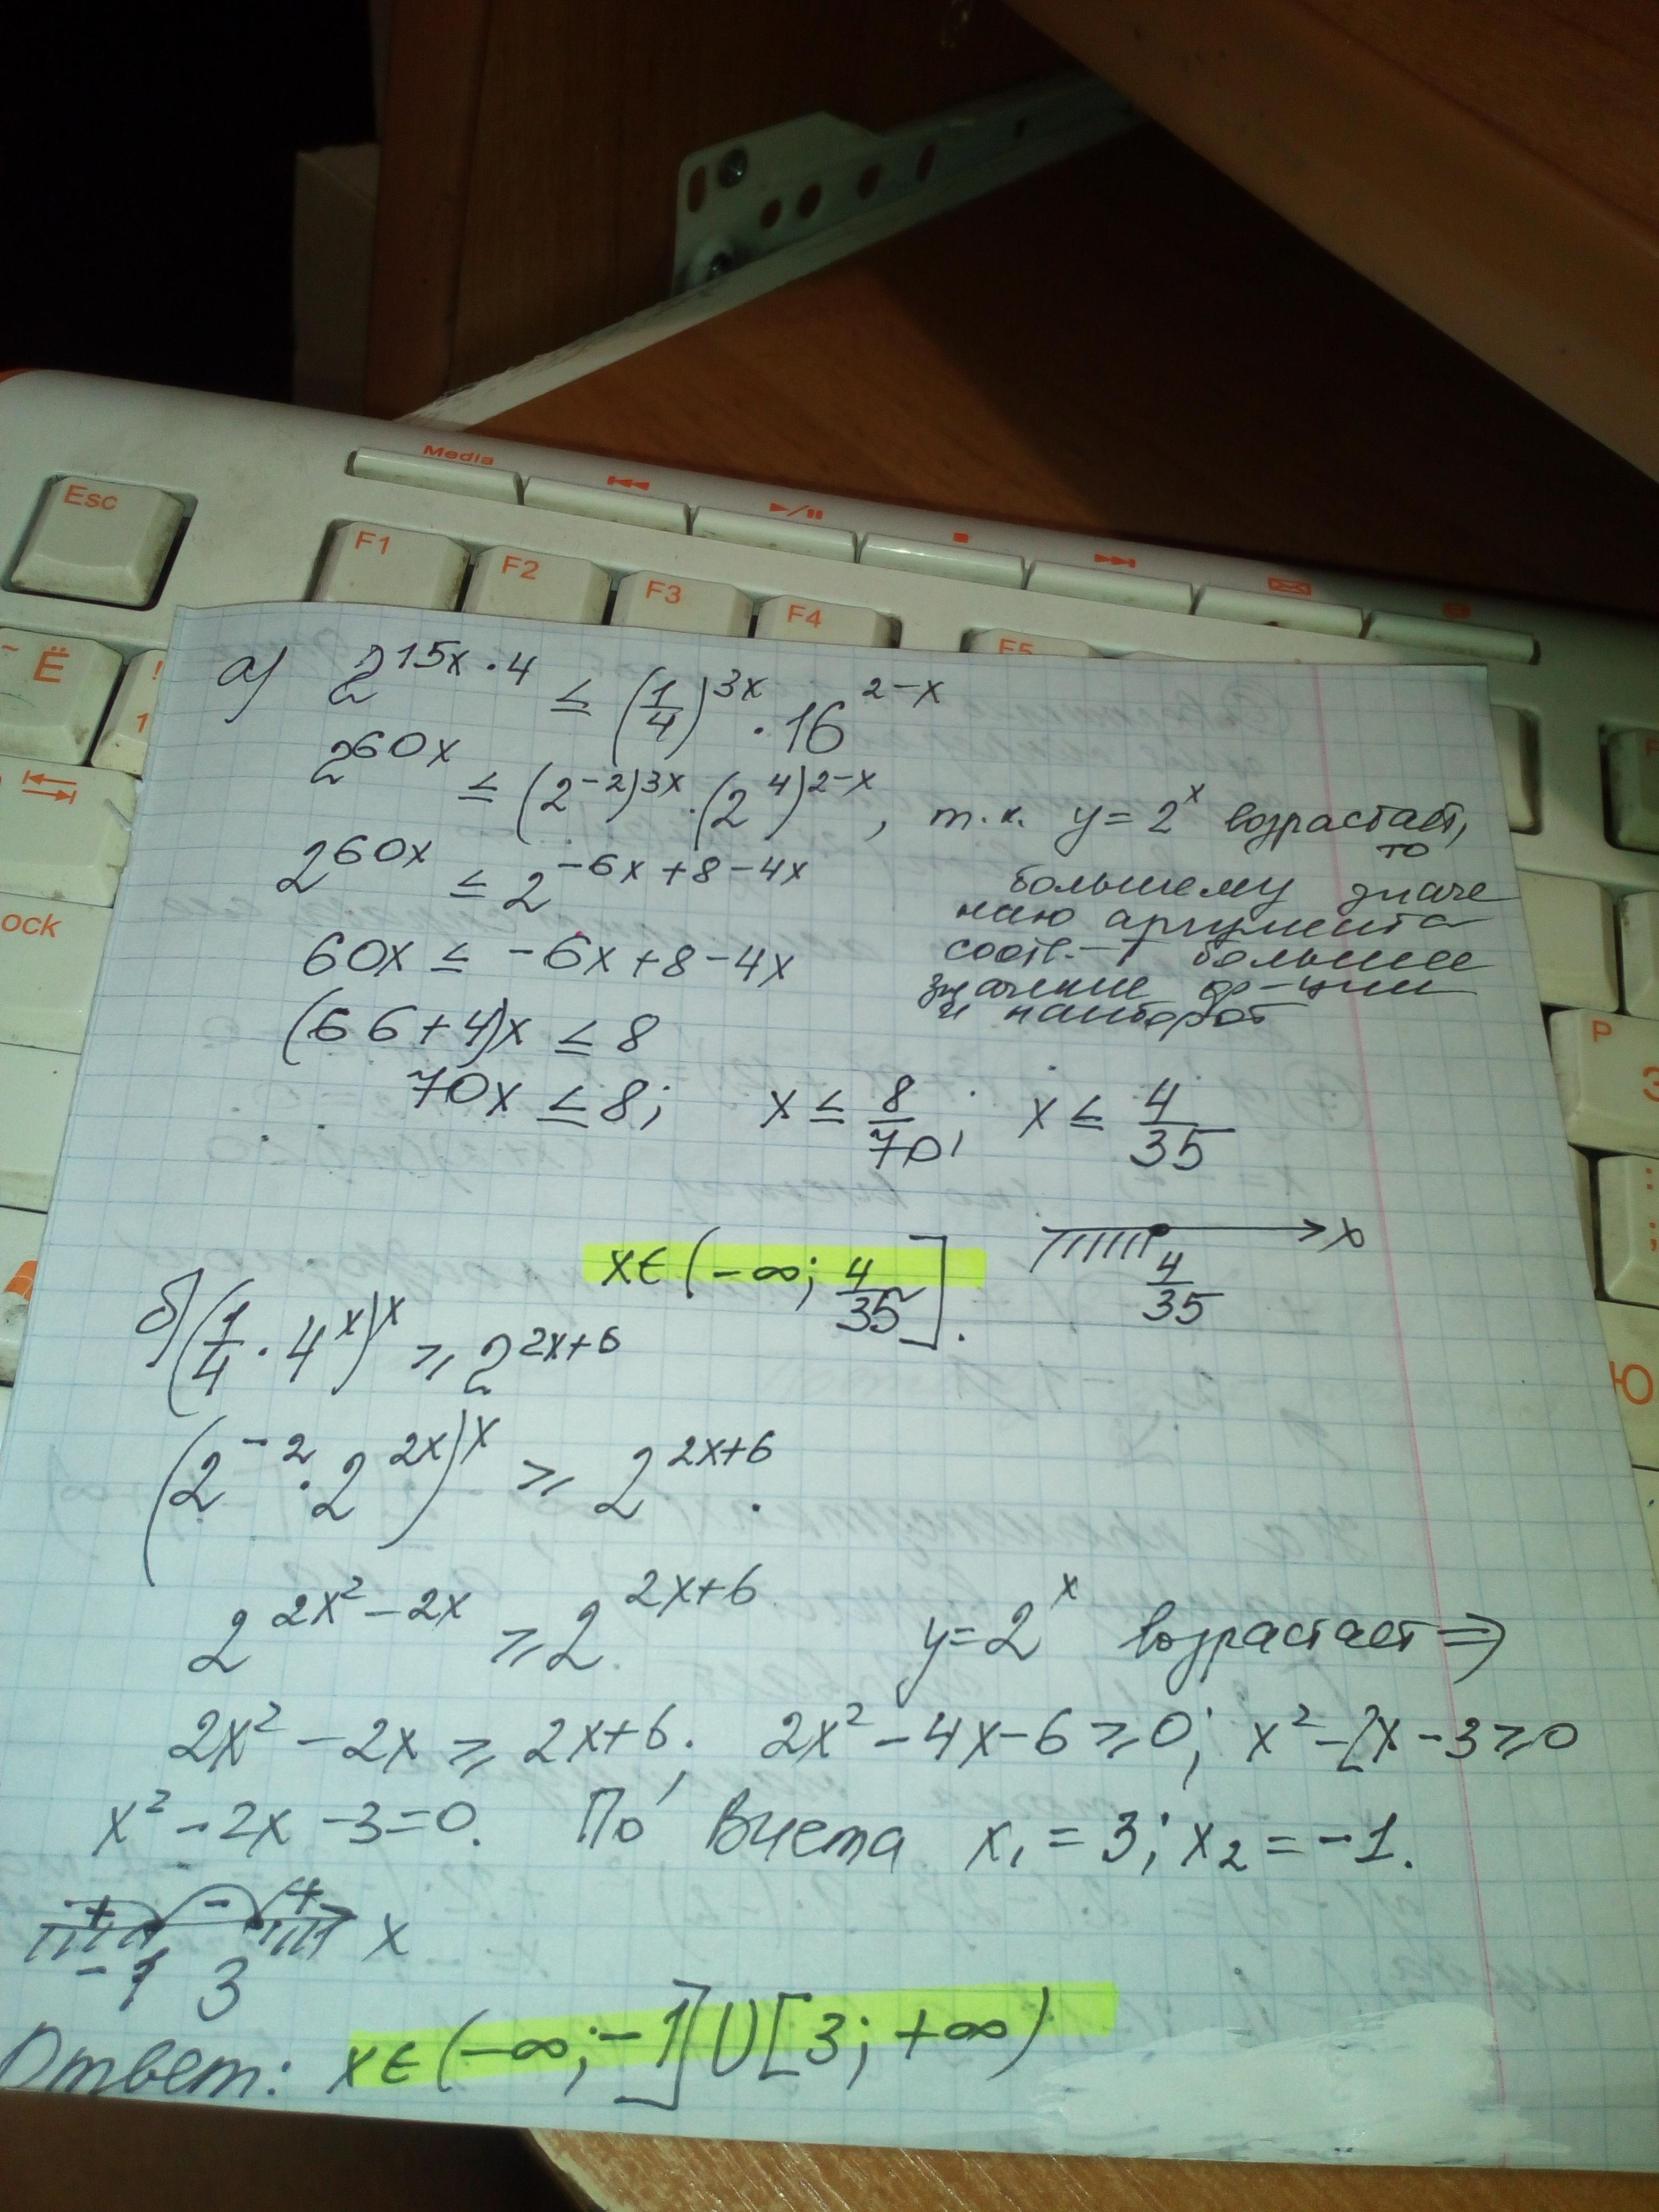 Media
Esc
F1
F2
F3
F4
F5
Ё
ock
а) 2^{15x·4} ≤ (1/4)^{3x} · 16^{2-x}
2^{60x} ≤ (2^{-2})^{3x} · (2^4)^{2-x}, т.к. y = 2^x возрастает,
то
большему значе
нию аргумента
соотв.-т большее
значение ф-ции
и наоборот
2^{60x} ≤ 2^{-6x+8-4x}
60x ≤ -6x+8-4x
(66+4)x ≤ 8
70x ≤ 8; x ≤ 8/70; x ≤ 4/35
x∈(-∞; 4/35].
x
4/35
б) (1/4 · 4^x)^x ≥ 2^{2x+6}
(2^{-2} · 2^{2x})^x ≥ 2^{2x+6}.
2^{2x²-2x} ≥ 2^{2x+6} y=2^x возрастает ⇒
2x² - 2x ≥ 2x+6; 2x² - 4x - 6 ≥ 0; x² - 2x - 3 ≥ 0
x² - 2x - 3 = 0. По Виета x₁ = 3; x₂ = -1.
+ - + x
-1 3
Ответ: x∈(-∞; -1]∪[3; +∞)
Р
З
Ю